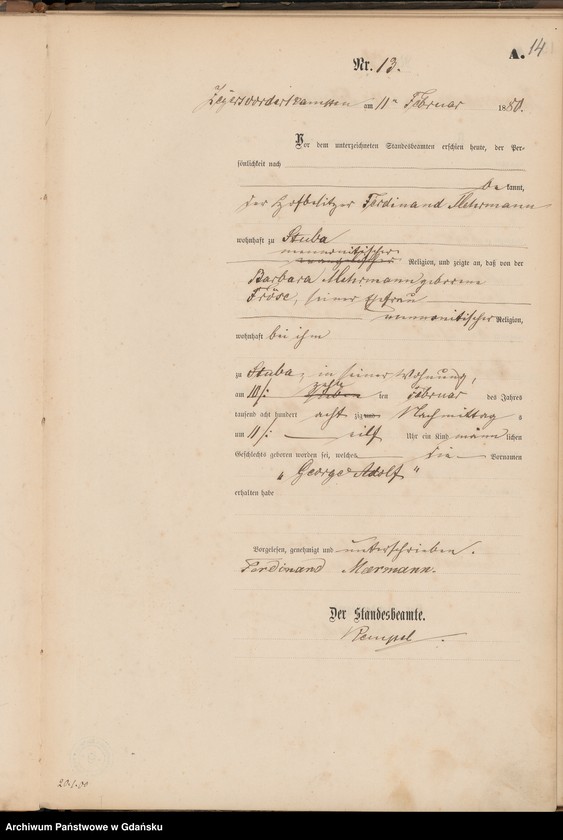 A. 14
Nr. 13.
Zeyersvorderkampen am 11ten Februar 1880.
Vor dem unterzeichneten Standesbeamten erschien heute, der Per-
sönlichkeit nach
be kannt,
der Hofbesitzer Ferdinand Mehrmann
wohnhaft zu Stuba
mennonitischer
evangelischer Religion, und zeigte an, daß von der
Barbara Mehrmann geborene
Fröse, seiner Ehefrau
mennonitischer Religion,
wohnhaft bei ihm
zu Stuba, in seiner Wohnung,
zehn
am 10/: ten Februar des Jahres
tausend acht hundert acht zig Nachmittag s
um 11/: eilf Uhr ein Kind männ lichen
Geschlechts geboren worden sei, welches die Vornamen
„ George Adolf "
erhalten habe
Vorgelesen, genehmigt und unterschrieben.
Ferdinand Mærmann.
Der Standesbeamte.
Rempel
20.1.00
Archiwum Państwowe w Gdańsku